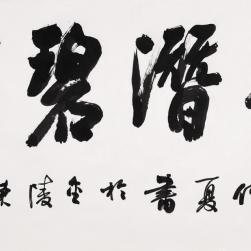 潛碧
仲夏書於金陵東